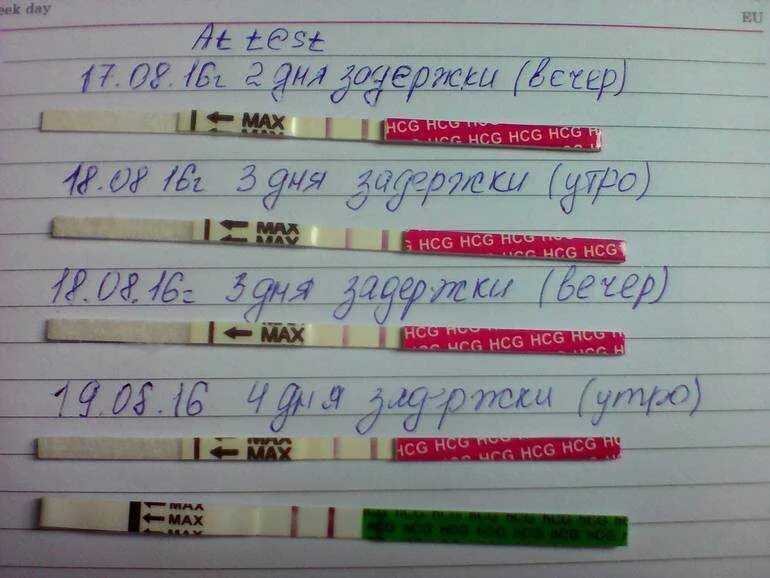 eek day
EU
At test
17.08.16г 2 дня задержки (вечер)
MAX
MAX
HCG HCG HCG HCG HCG
HCG HCG HCG HCG
18.08 16г 3 дня задержки (утро)
MAX
MAX
G HCG HCG HCG HCG HCG
HCG HCG HCG HCG HCG
18.08.16г 3 дня задержки (вечер)
MAX
HCG HCG HCG HCG HCG
HCG HCG HCG HCG
19.08.16 4 дня задержки (утро)
MAX
MAX
HCG HCG HCG HCG HCG
HCG HCG HCG HCG HCG
MAX
MAX
MAX
HCG HCG HCG HCG
HCG HCG HCG HCG HCG